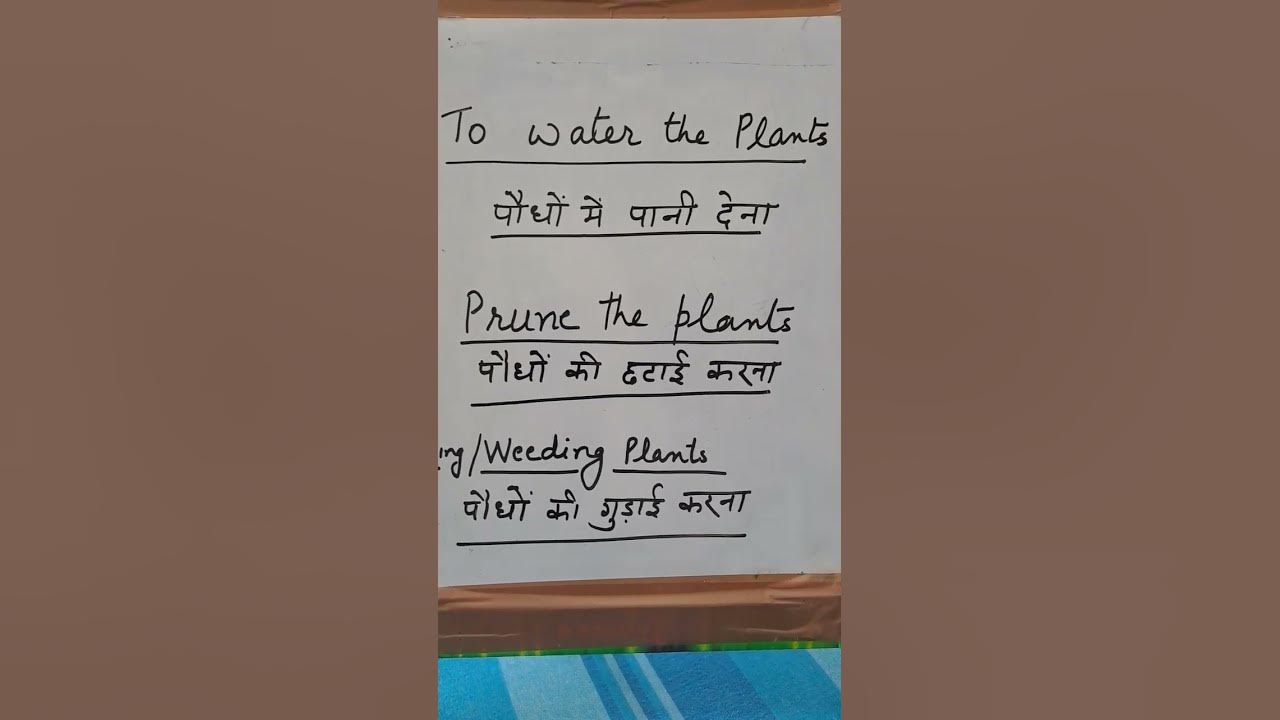 To water the Plants
पौधों में पानी देना
Prune the plants
पौधों की छटाई करना
ing/Weeding Plants
पौधों की गुड़ाई करना